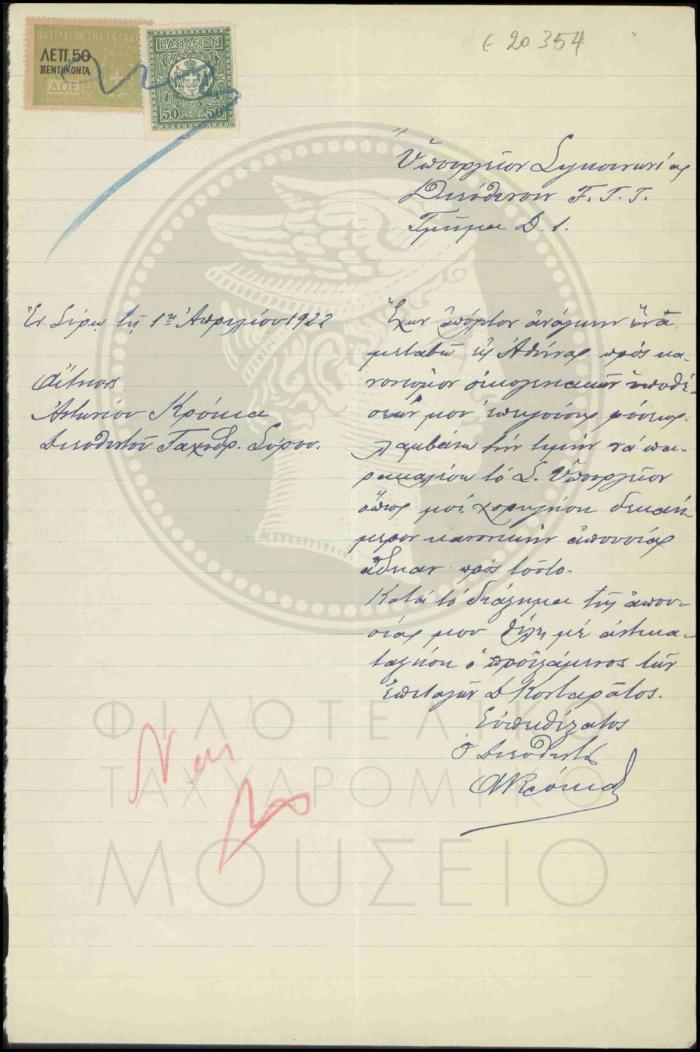 ΛΕΠ. 50
ΠΕΝΤΗΚΟΝΤΑ
50 50
20354
Ὑπουργεῖον Συγκοινωνίας
Διεύθυνσιν Τ. Τ. Τ.
Τμῆμα Δ. 1.
Ἐν Σύρῳ τῇ 1ῃ Ἀπριλίου 1922
Αἴτησις
Ἀντωνίου Κρόκια
Διευθυντοῦ Ταχυδρ. Σύρου.
Ἔχων ἀπόλυτον ἀνάγκην ἵνα
μεταβῶ εἰς Ἀθήνας πρὸς κα-
νονισμὸν οἰκογενειακῶν ὑποθέ-
σεών μου ἐπειγούσης φύσεως
λαμβάνω τὴν τιμὴν νὰ πα-
ρακαλέσω τὸ Σ. Ὑπουργεῖον
ὅπως μοὶ χορηγήσῃ δεκαή-
μερον κανονικὴν ἀπουσίας
ἄδειαν πρὸς τοῦτο.
Κατὰ τὸ διάστημα τῆς ἀπου-
σίας μου θέλει μὲ ἀντικα-
ταστήσῃ ὁ προϊστάμενος τῶν
Ἐπιταγῶν Δ Κονταρᾶτος.
Εὐπειθέστατος
Ὁ Διευθυντὴς
ΑΚρόκιας
Ναι
ΦΙΛΟΤΕΛΙΚΟ
ΤΑΧΥΔΡΟΜΙΚΟ
ΜΟΥΣΕΙΟ